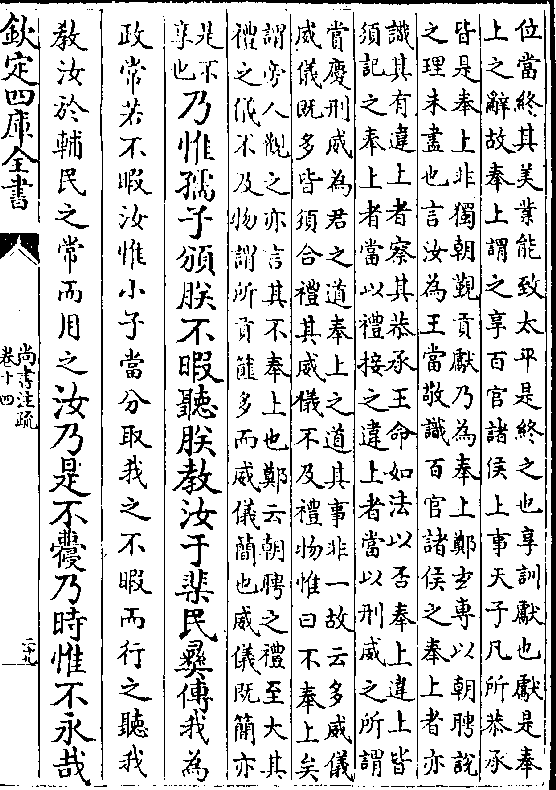 位當終其美業能致太平是終之也享訓獻也獻是奉
上之辭故奉上謂之享百官諸侯上事天子凡所恭承
皆是奉上非獨朝覲貢獻乃為奉上鄭𤣥専以朝聘說
之理未盡也言汝為王當敬識百官諸侯之奉上者亦
識其有違上者察其恭承王命如法以否奉上違上皆
須記之奉上者當以禮接之違上者當以刑威之所謂
賞慶刑威為君之道奉上之道其事非一故云多威儀
威儀既多皆須合禮其威儀不及禮物惟曰不奉上矣
謂旁人觀之亦言其不奉上也鄭云朝聘之禮至大其
禮之儀不及物謂所貢篚多而威儀簡也威儀既簡亦
是不
享也
乃惟孺子頒朕不暇聽朕教汝于棐民彝傳我為
政常若不暇汝惟小子當分取我之不暇而行之聽我
教汝於輔民之常而用之汝乃是不蘉乃時惟不永哉
欽定四庫全書
尚書注疏
卷十四
二十九